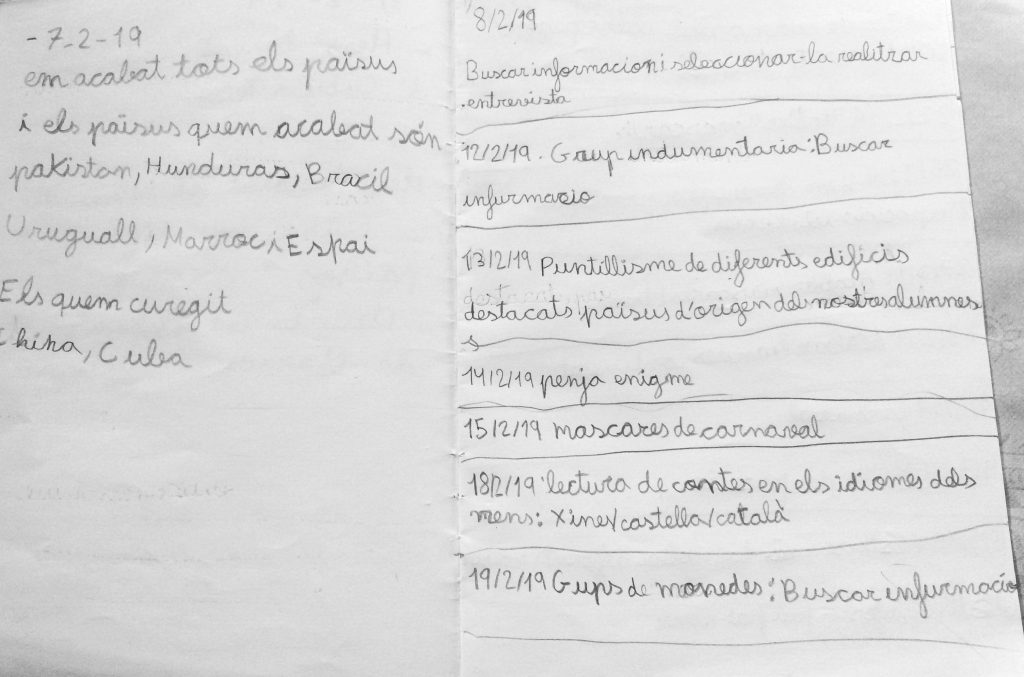 - 7-2-19
em acabat tots els països
i els païsus quem acabat són
pakistan, Hunduras, Bracil
Uruguall, Marroc i Espai
Els quem curegit
Chiha, Cuba
8/2/19
Buscar informacion i seleccionar-la realitzar
entrevista
12/2/19. Grup indumentaria: Buscar
infurmacio
13/2/19 Puntillisme de diferents edificis
destacats païsus d'origen dels nostres alumnes
s
14/2/19 penja enigme
15/2/19 mascares de carnaval
18/2/19 lectura de contes en els idiomes dels
mens: Xines/castella/català
19/2/19 Gups de monedes: Buscar infurmacio